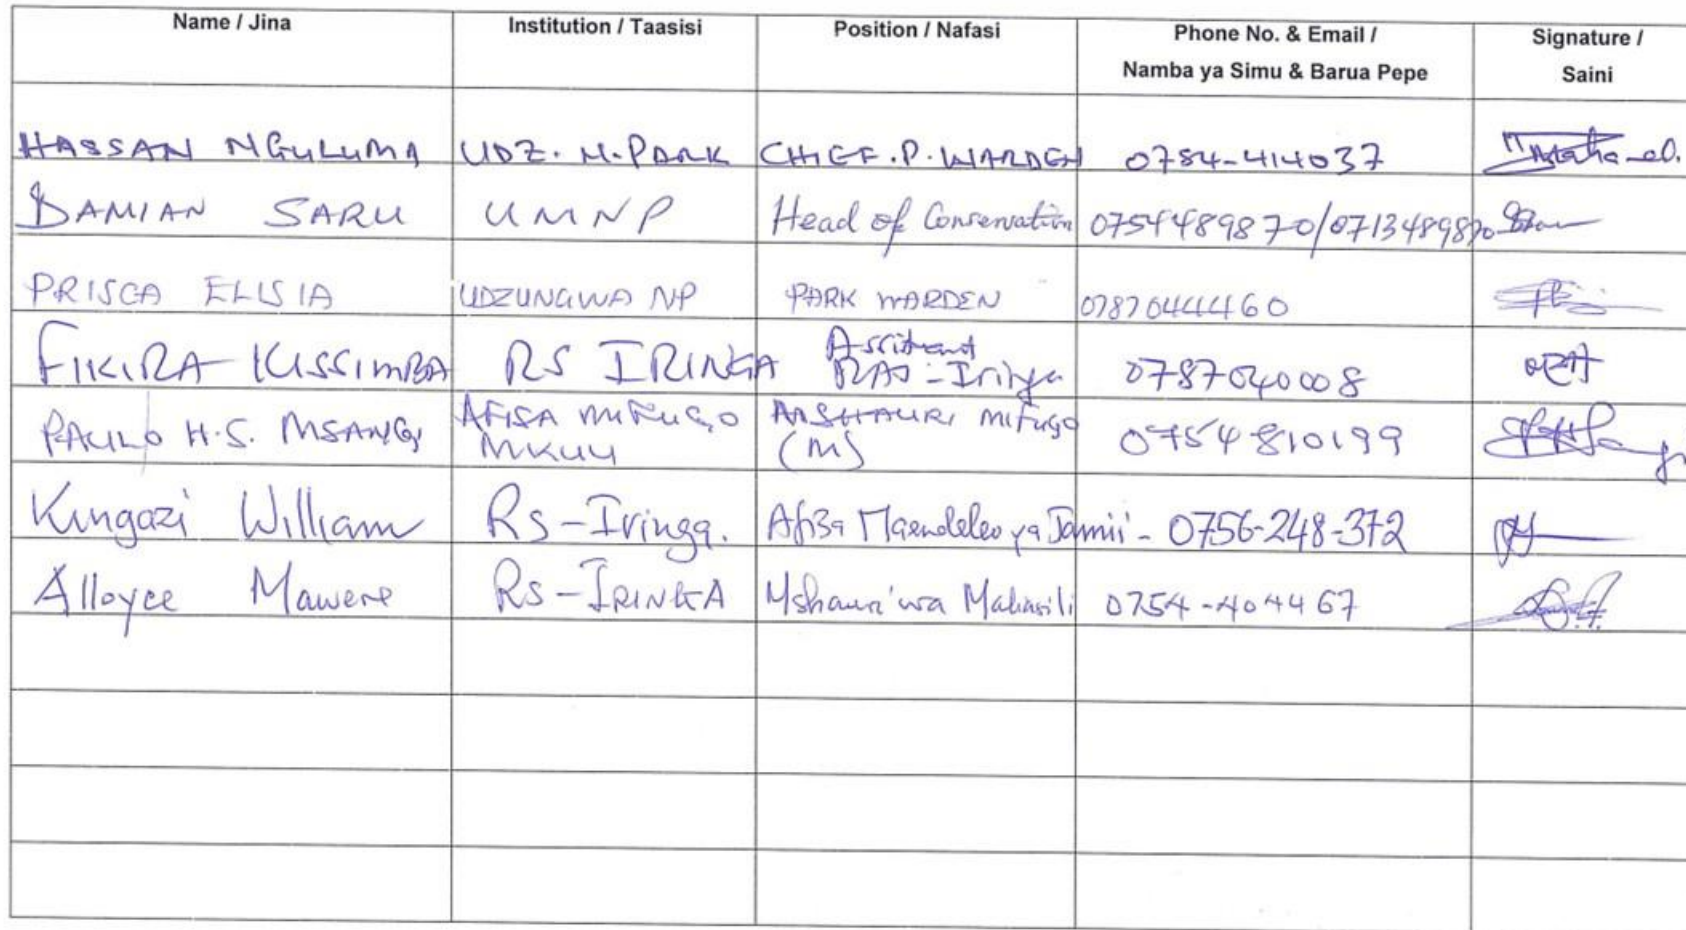 Name / Jina Institution / Taasisi Position / Nafasi Phone No. & Email / Signature /
Namba ya Simu & Barua Pepe Saini
HASSAN NGULUMA UDZ. N. PARK CHIEF. P. WARDEN 0784-414037
DAMIAN SARU UMNP Head of Conservation 0754489870/0713489870
PRISCA ELISIA UDZUNGWA NP PARK WARDEN 0787044460
FIKIRA KISSIMBA RS IRINGA Assistant RAS - Iringa 0787040008
PAULO H.S. MSANGI AFISA MIFUGO MSHAURI MIFUGO 0754 810199
MKUU (M)
Kingazi William RS-Iringa. Afisa Maendeleo ya Jamii - 0756-248-372
Alloyce Mawere RS-IRINGA Mshauri wa Maliasili 0754-404467